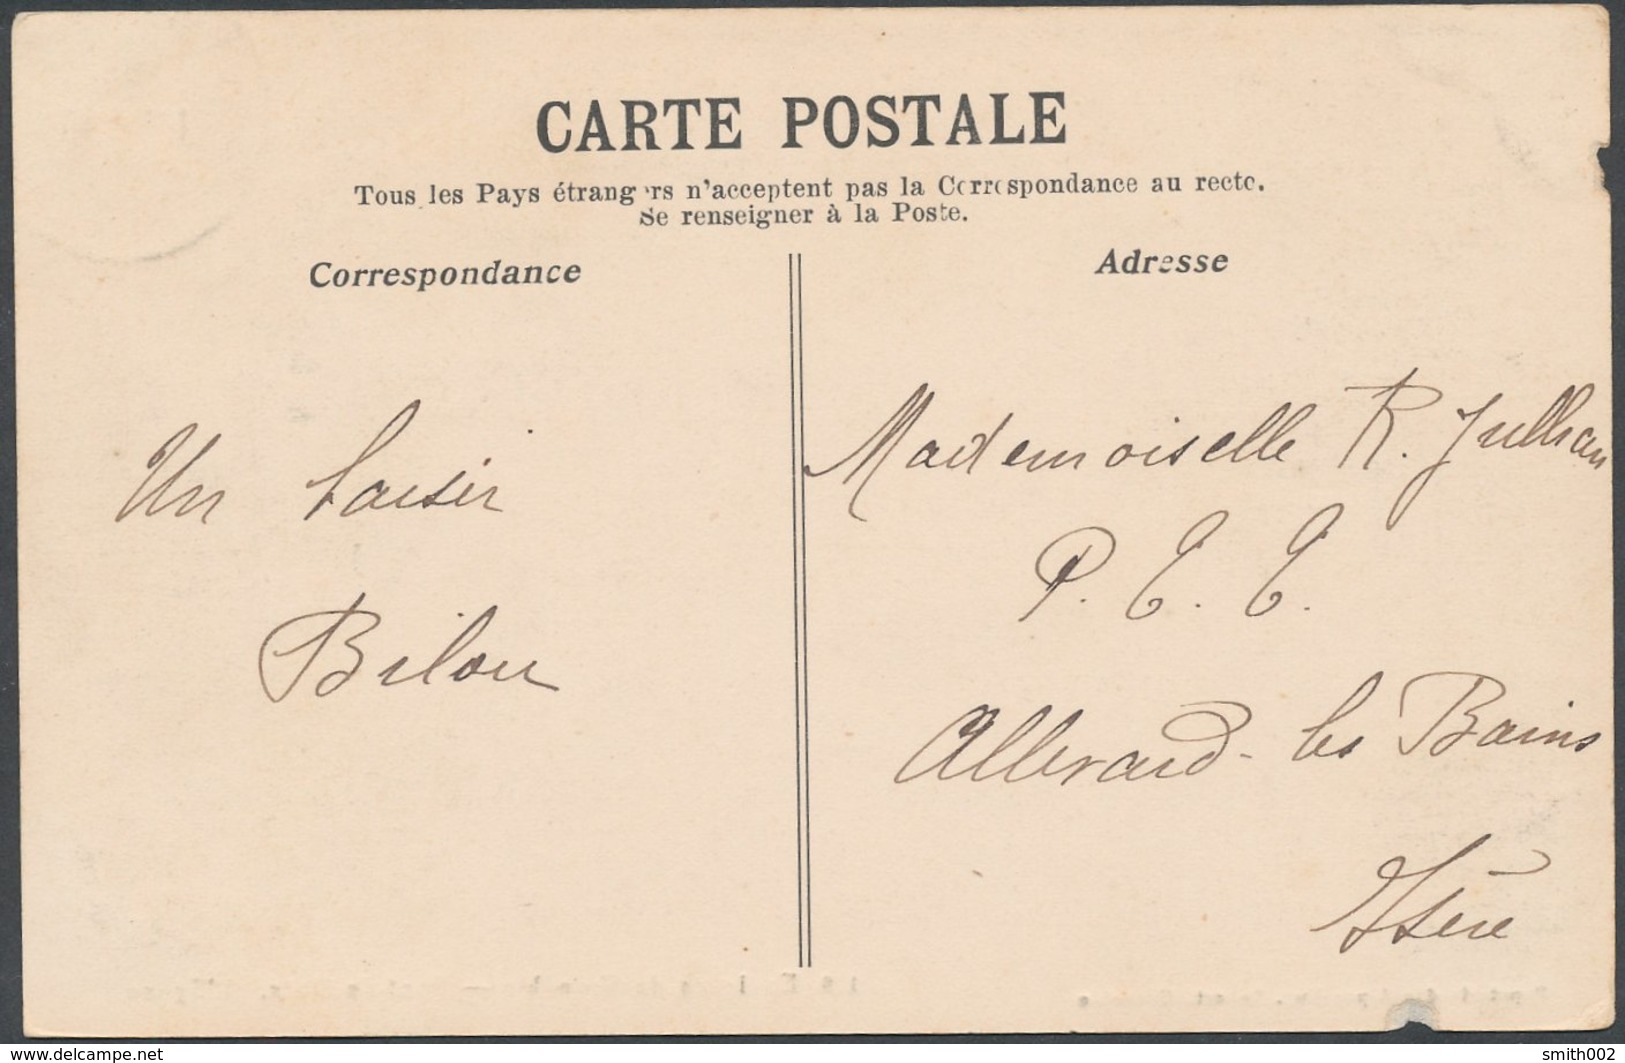 CARTE POSTALE
Tous les Pays étrangers n'acceptent pas la Correspondance au recto.
Se renseigner à la Poste.
Correspondance
Adresse
Un baiser
Bilou
Mademoiselle R. Jullian
P. T. T.
Allevard-les Bains
Isère
www.delcampe.net
smith002